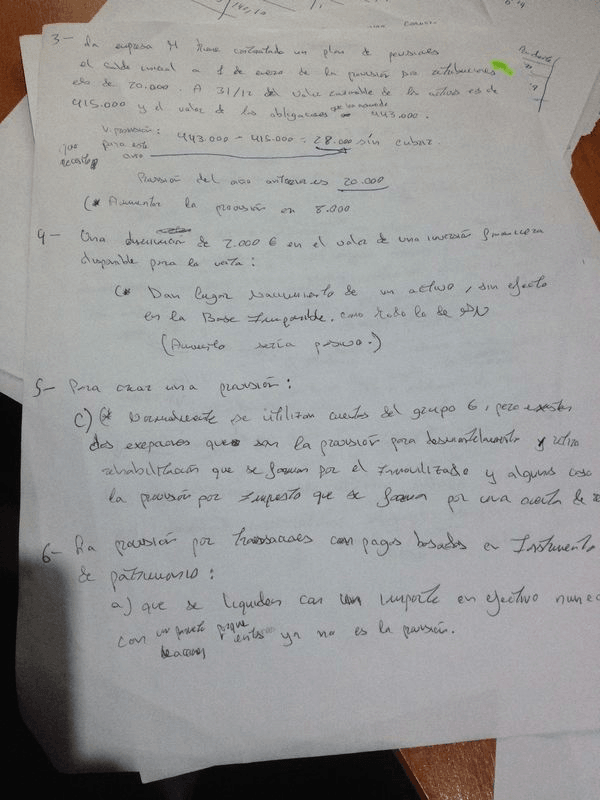 3- La empresa M tiene contratado un plan de pensiones
el saldo inicial a 1 de enero de la provisión por retribuciones
era de 20.000. A 31/12 del valor razonable de los activos es de
415.000 y el valor de las obligaciones 443.000.
V. provisión: 443.000 - 415.000 = 28.000 sin cubrir.
que necesito para este año
Provisión del año anterior es 20.000
(* Aumentar la provisión en 8.000
4- Una disminución de 2.000 € en el valor de una inversión financiera
disponible para la venta:
C* Dan lugar nacimiento de un activo, sin efecto
en la Base Imponible, como todo lo de PN
(Aumento sería pasivo.)
5- Para crear una provisión:
c) (* Normalmente se utilizan cuentas del grupo 6, pero existen
dos excepciones que son la provisión para desmantelamiento y retiro
rehabilitación que se forman por el Inmovilizado y algunos caso
la provisión por Impuesto que se forman por una cuenta de
6- La provisión por transacciones con pagos basados en Instrumento
de patrimonio:
a) que se liquiden con un importe en efectivo nunca
con un porque entonces ya no es la provisión.